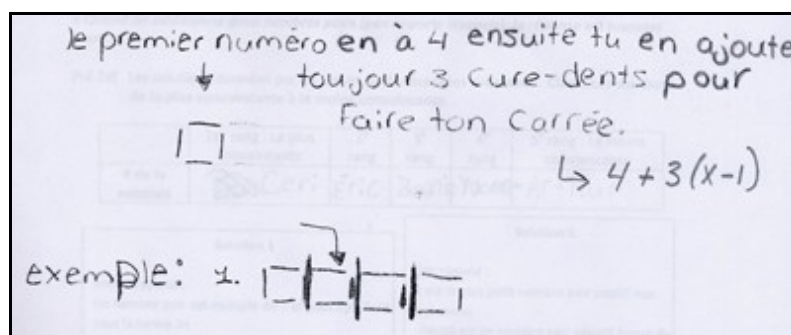 le premier numéro en à 4 ensuite tu en ajoute
toujour 3 cure-dents pour
faire ton carrée.
↳ 4 + 3(x-1)
exemple: 1.